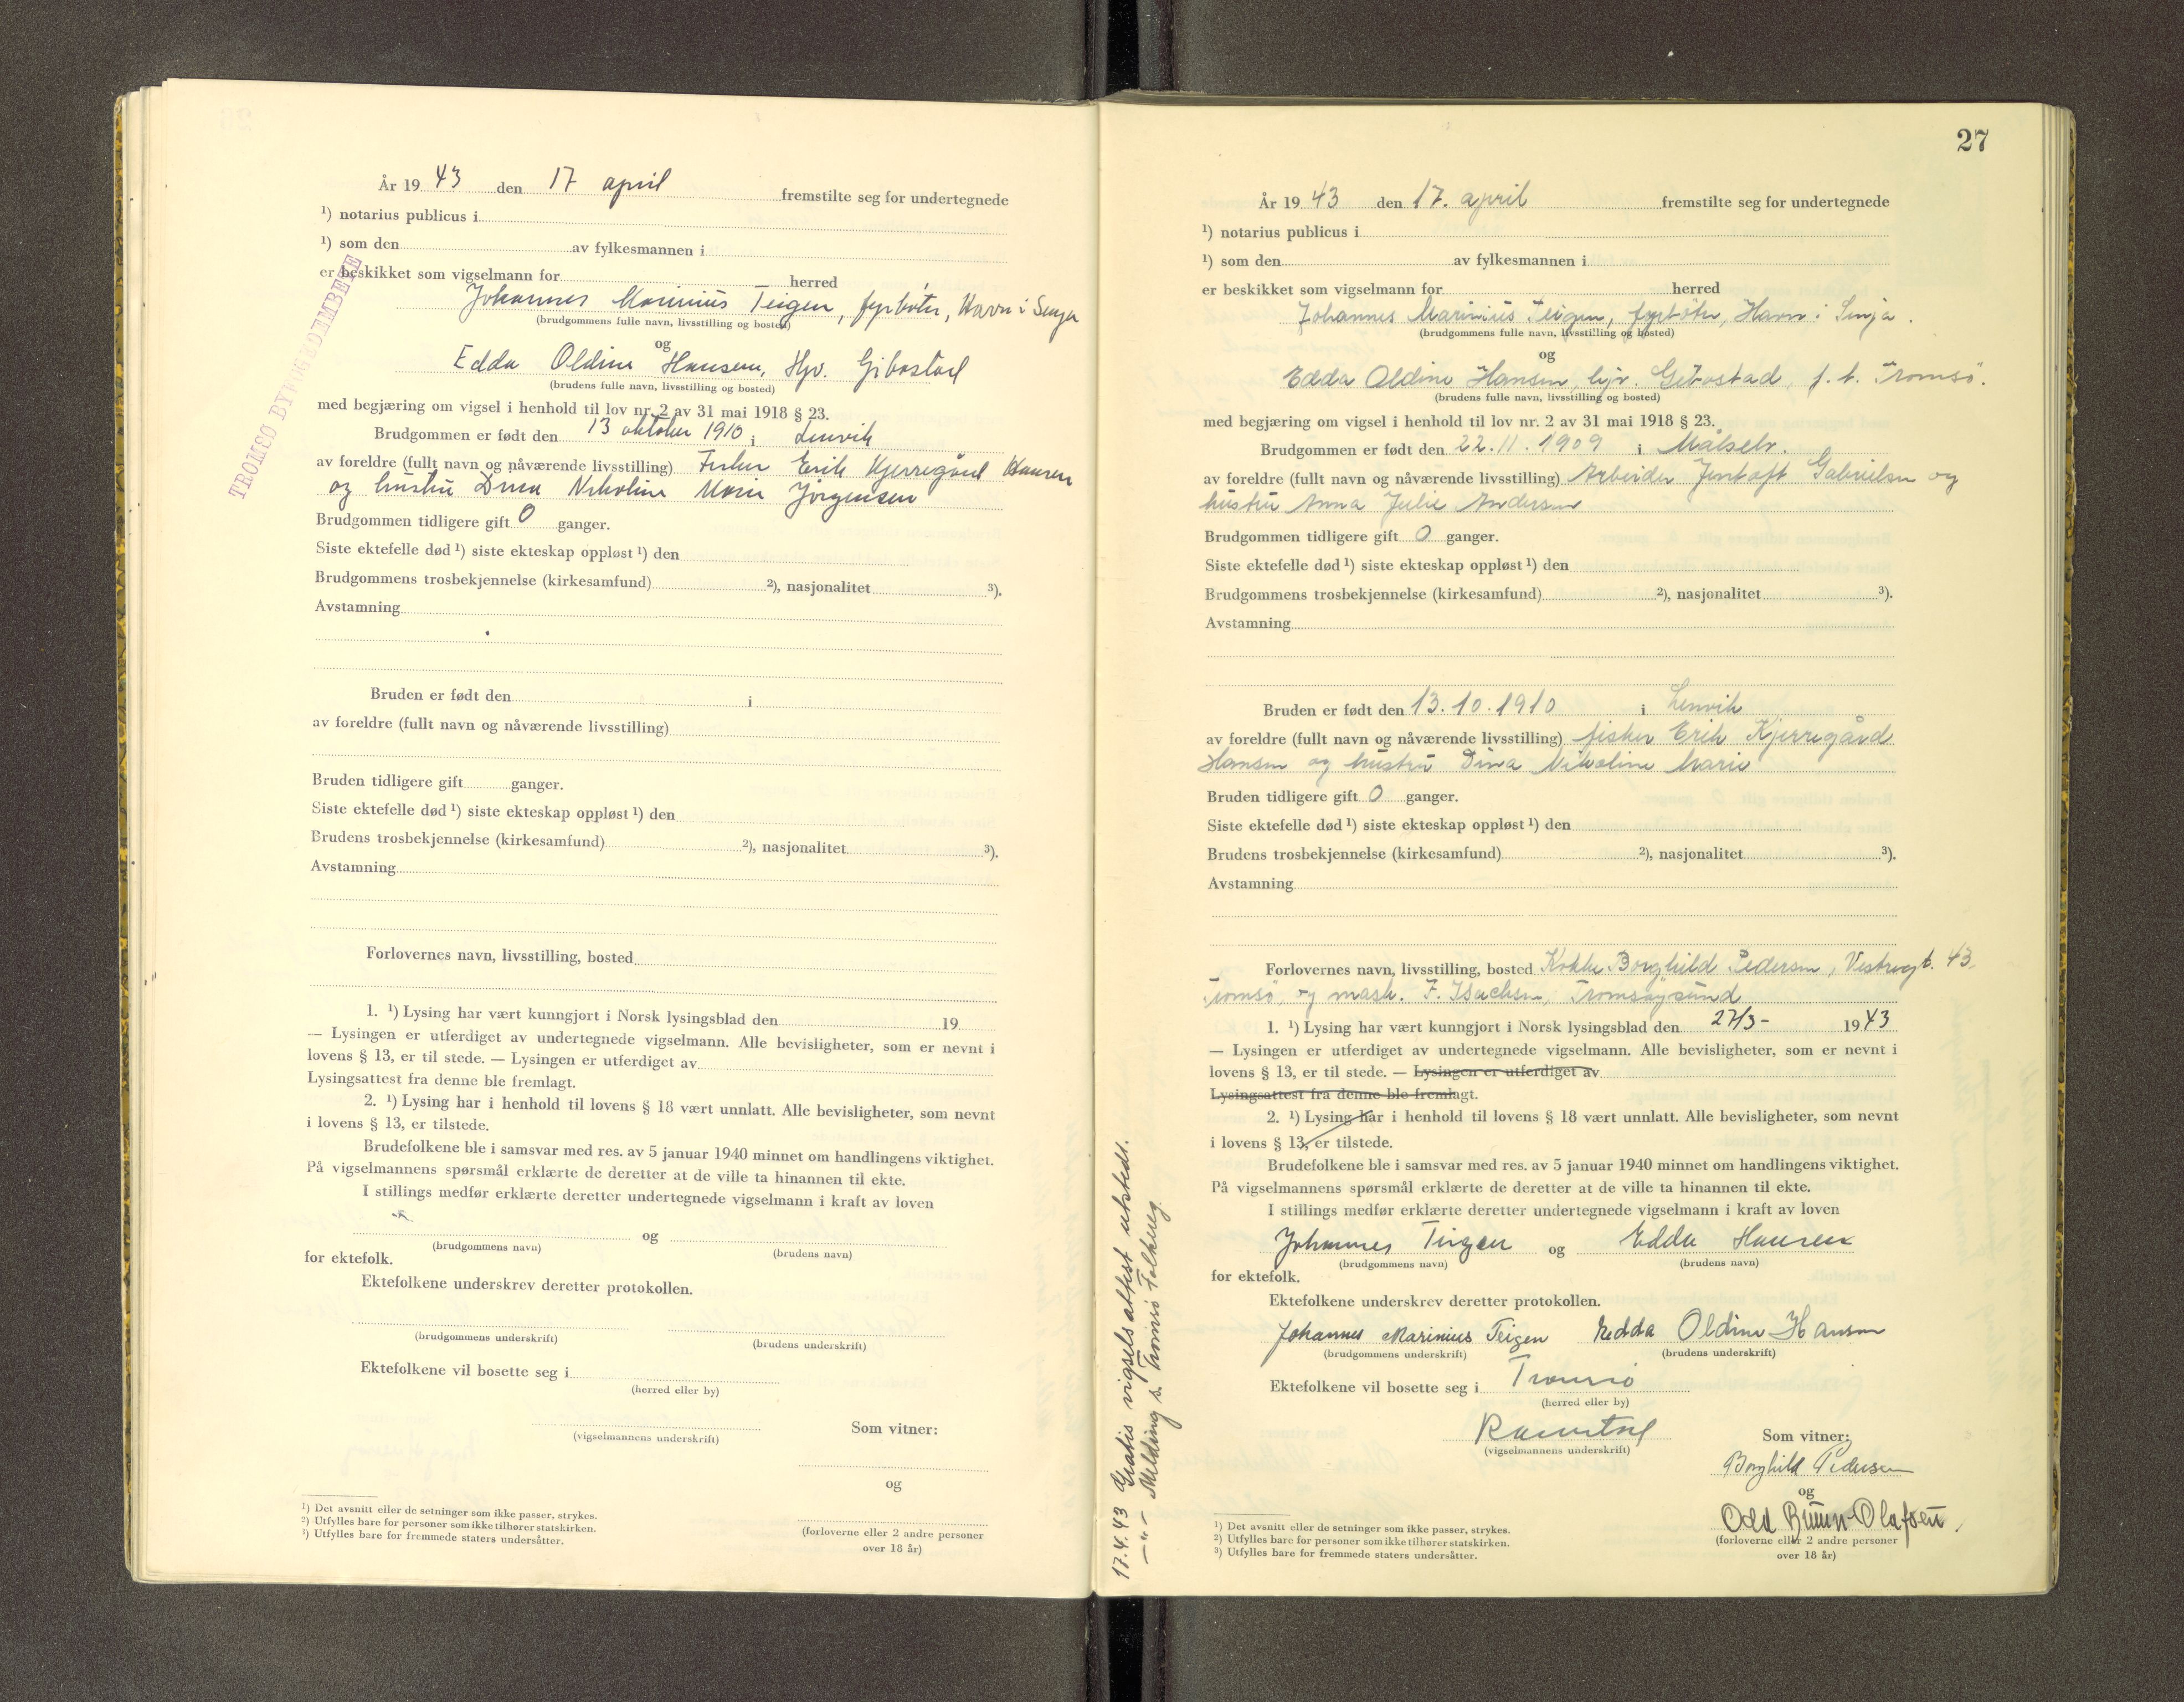 TROMSØ BYFOGDEMBETE
År 19 43 den 17 april fremstilte seg for undertegnede
¹) notarius publicus i
¹) som den av fylkesmannen i
er beskikket som vigselmann for herred
Johannes Marinius Teigen, fyrbøter, Havn i Senja
(brudgommens fulle navn, livsstilling og bosted)
og
Edda Oldine Hansen, Hjv. Gibostad
(brudens fulle navn, livsstilling og bosted)
med begjæring om vigsel i henhold til lov nr. 2 av 31 mai 1918 § 23.
Brudgommen er født den 13 oktober 1910 i Lenvik
av foreldre (fullt navn og nåværende livsstilling) Fisker Erik Kjerregård Hansen
og hustru Dina Nikoline Marie Jörgensen
Brudgommen tidligere gift 0 ganger.
Siste ektefelle død ¹) siste ekteskap oppløst ¹) den
Brudgommens trosbekjennelse (kirkesamfund) ²), nasjonalitet ³).
Avstamning
Bruden er født den i
av foreldre (fullt navn og nåværende livsstilling)
Bruden tidligere gift ganger.
Siste ektefelle død ¹) siste ekteskap oppløst ¹) den
Brudens trosbekjennelse (kirkesamfund) ²), nasjonalitet ³).
Avstamning
Forlovernes navn, livsstilling, bosted
1. ¹) Lysing har vært kunngjort i Norsk lysingsblad den 19
— Lysingen er utferdiget av undertegnede vigselmann. Alle bevisligheter, som er nevnt i
lovens § 13, er til stede. — Lysingen er utferdiget av
Lysingsattest fra denne ble fremlagt.
2. ¹) Lysing har i henhold til lovens § 18 vært unnlatt. Alle bevisligheter, som nevnt
i lovens § 13, er tilstede.
Brudefolkene ble i samsvar med res. av 5 januar 1940 minnet om handlingens viktighet.
På vigselmannens spørsmål erklærte de deretter at de ville ta hinannen til ekte.
I stillings medfør erklærte deretter undertegnede vigselmann i kraft av loven
og
(brudgommens navn) (brudens navn)
for ektefolk.
Ektefolkene underskrev deretter protokollen.
(brudgommens underskrift) (brudens underskrift)
Ektefolkene vil bosette seg i
(herred eller by)
(vigselmannens underskrift)
Som vitner:
og
(forloverne eller 2 andre personer
over 18 år)
¹) Det avsnitt eller de setninger som ikke passer, strykes.
²) Utfylles bare for personer som ikke tilhører statskirken.
³) Utfylles bare for fremmede staters undersåtter.
27
År 19 43 den 17. april fremstilte seg for undertegnede
¹) notarius publicus i
¹) som den av fylkesmannen i
er beskikket som vigselmann for herred
Johannes Marinius Teigen, fyrbøter, Havn i Senja.
(brudgommens fulle navn, livsstilling og bosted)
og
Edda Oldine Hansen, hjv. Gibostad, f. t. Tromsö.
(brudens fulle navn, livsstilling og bosted)
med begjæring om vigsel i henhold til lov nr. 2 av 31 mai 1918 § 23.
Brudgommen er født den 22.11.1909 i Målselv.
av foreldre (fullt navn og nåværende livsstilling) Arbeider Jentoft Gabrielsen og
hustru Anna Julie Andersen
Brudgommen tidligere gift 0 ganger.
Siste ektefelle død ¹) siste ekteskap oppløst ¹) den
Brudgommens trosbekjennelse (kirkesamfund) ²), nasjonalitet ³).
Avstamning
Bruden er født den 13.10.1910 i Lenvik
av foreldre (fullt navn og nåværende livsstilling) fisker Erik Kjerregård
Hansen og hustru Dina Nikoline Marie
Bruden tidligere gift 0 ganger.
Siste ektefelle død ¹) siste ekteskap oppløst ¹) den
Brudens trosbekjennelse (kirkesamfund) ²), nasjonalitet ³).
Avstamning
Forlovernes navn, livsstilling, bosted Kokke Borghild Pedersen, Vestregt. 43
Tromsö, og mask. F. Isachsen, Tromsöysund
1. ¹) Lysing har vært kunngjort i Norsk lysingsblad den 27/3- 19 43
— Lysingen er utferdiget av undertegnede vigselmann. Alle bevisligheter, som er nevnt i
lovens § 13, er til stede. — Lysingen er utferdiget av
Lysingsattest fra denne ble fremlagt.
2. ¹) Lysing har i henhold til lovens § 18 vært unnlatt. Alle bevisligheter, som nevnt
i lovens § 13, er tilstede.
Brudefolkene ble i samsvar med res. av 5 januar 1940 minnet om handlingens viktighet.
På vigselmannens spørsmål erklærte de deretter at de ville ta hinannen til ekte.
I stillings medfør erklærte deretter undertegnede vigselmann i kraft av loven
Johannes Teigen og Edda Hansen
(brudgommens navn) (brudens navn)
for ektefolk.
Ektefolkene underskrev deretter protokollen.
Johannes Marinius Teigen Edda Oldine Hansen
(brudgommens underskrift) (brudens underskrift)
Ektefolkene vil bosette seg i Tromsö
(herred eller by)
(vigselmannens underskrift)
Som vitner:
Borghild Pedersen
og
Odd Bruun-Olafsen.
(forloverne eller 2 andre personer
over 18 år)
¹) Det avsnitt eller de setninger som ikke passer, strykes.
²) Utfylles bare for personer som ikke tilhører statskirken.
³) Utfylles bare for fremmede staters undersåtter.
17.4.43 Gratis vigselsattest utstedt.
—"— Melding s. Tromsö Folkereg.